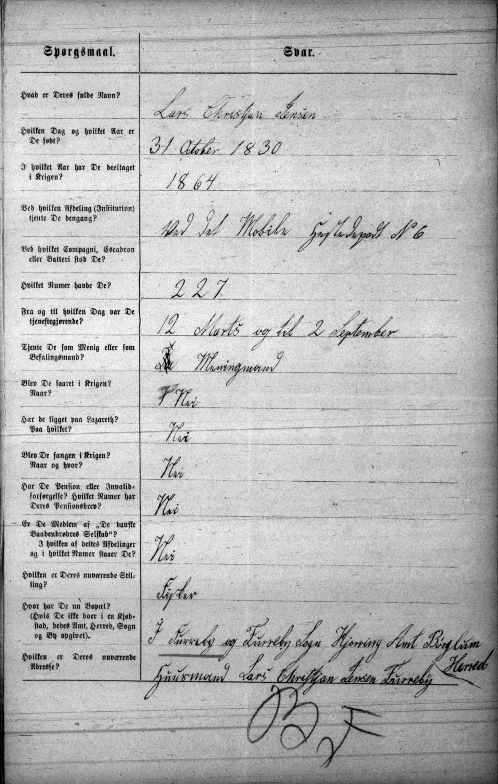 Spørgsmaal. Svar.
Hvad er Deres fulde Navn?
Lars Christjan Jensen
Hvilken Dag og hvilket Aar er
De født?
31 Otober 1830
I hvilket Aar har De deeltaget
i Krigen?
1864
Ved hvilken Afdeling (Institution)
tjente De dengang?
Ved det Mobile Hestedepodt No 6
Ved hvilket Compagni, Escadron
eller Batteri stod De?
Hvilket Numer havde De?
227
Fra og til hvilken Dag var De
tjenestegjørende?
12 Marts og til 2 September
Tjente De som Menig eller som
Befalingsmand?
Meningmand
Blev De saaret i Krigen?
Naar?
Nei
Har De ligget paa Lazareth?
Paa hvilket?
Nei
Blev De fangen i Krigen?
Naar og hvor?
Nei
Har De Pension eller Invalid-
forsørgelse? Hvilket Numer har
Deres Pensionsbrev?
Nei
Er De Medlem af „De danske
Vaabenbrødres Selskab"?
I hvilken af dettes Afdelinger
og i hvilket Numer staaer De?
Nei
Hvilken er Deres nuværende Stil-
ling?
Fisker
Hvor har De nu Bopæl?
(Hvis De ikke boer i en Kjøb-
stad, bedes Amt, Herred, Sogn
og By opgivet).
I Furreby og Furreby Sogn Hjørring Amt Børglum
Herred
Hvilken er Deres nuværende
Adresse?
Huurmand Lars Christjan Jensen Furreby